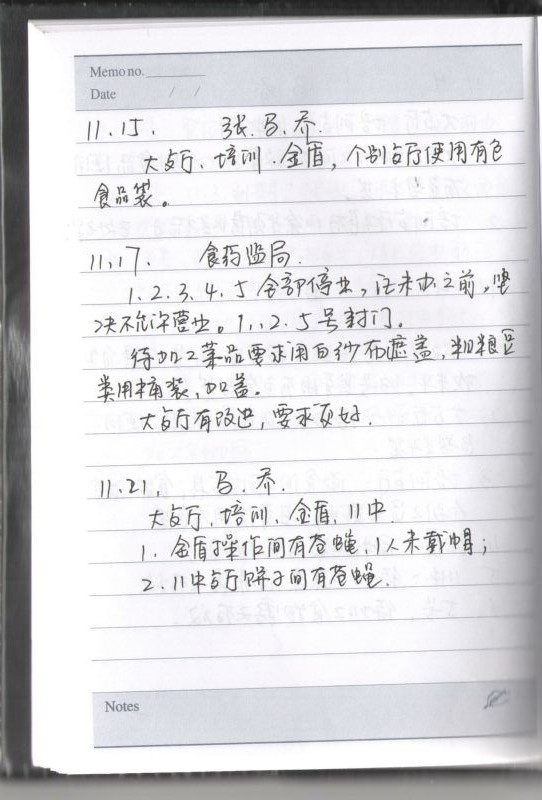 Memo no.
Date / /
11.15. 张.马.乔.
大占厅、培训、金盾,个别占厅使用有色
食品袋。
11.17. 食药监局.
1.2.3.4.5全部停业,证未办之前,坚
决不允许营业。1.2.5号封门。
待加工菜品要求用白纱布遮盖,粗粮豆
类用桶装,加盖.
大占厅有改进,要求更好.
11.21. 马.乔.
大占厅、培训、金盾、11中.
1.金盾操作间有苍蝇,1人未戴帽;
2.11中占厅饼子间有苍蝇.
Notes